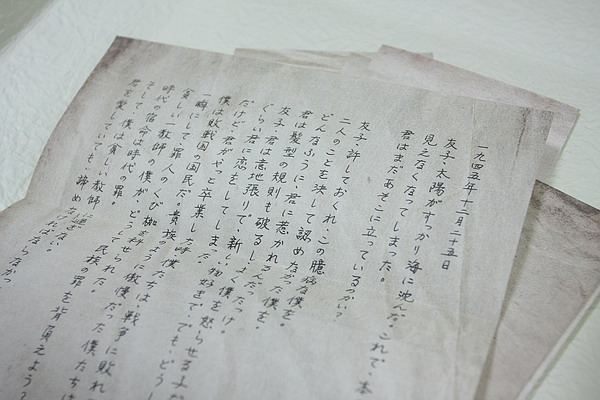 一九四五年十二月二十五日
友子、太陽がすっかり海に沈んだ。これで、本
見えなくなってしまった。
君はまだあそこに立っているのかい?
友子、許しておくれ、この臆病な僕を。
二人のことを決して認めなかった僕を。
どんなふうに、君に惹かれるんだったっけ。
君は髪型の規則も破るし、よく僕を怒らせる子だ
友子、君は意地張りで、新しい物好きで、でも、どうし
くらい君に恋をしてしまった。
だけど、君がやっと卒業した時、
僕たちは、戦争に敗れ
僕は敗戦国の国民だ。
貴族のように傲慢だった僕たちは
一瞬にして、罪人のくび枷を科せられた。
貧しい一教師の僕が、どうして民族の罪を背負えよう?
時代の宿命は時代の罪。
そして、僕は貧しい教師に過ぎない。
君を愛していても、諦めなければならなかっ